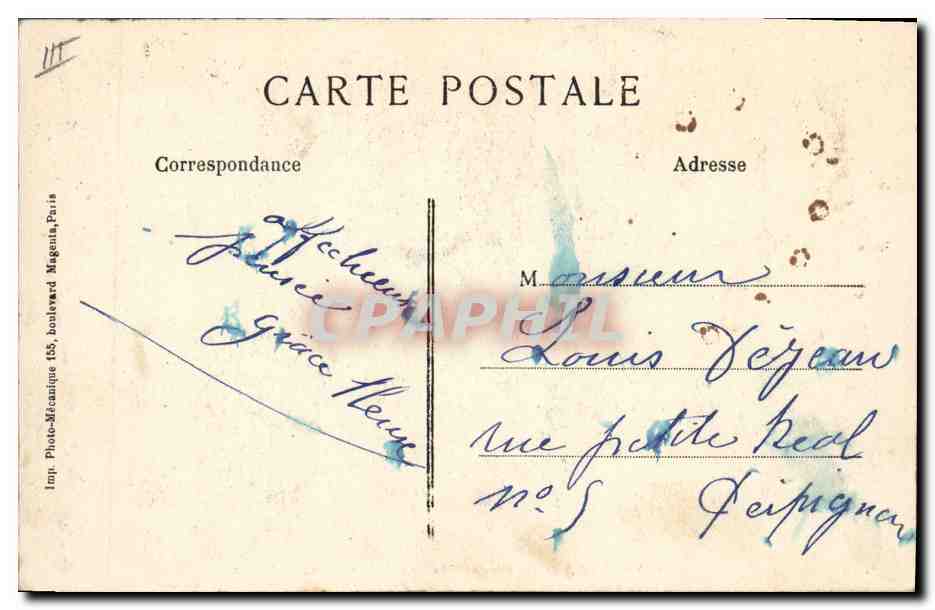 III
CARTE POSTALE
Correspondance
Adresse
affectueuse
pensée
Grâce
Monsieur
Louis Déjean
rue petite Real
n° 5 Perpignan
Imp. Photo-Mécanique 155, boulevard Magenta, Paris
CPAPHIL